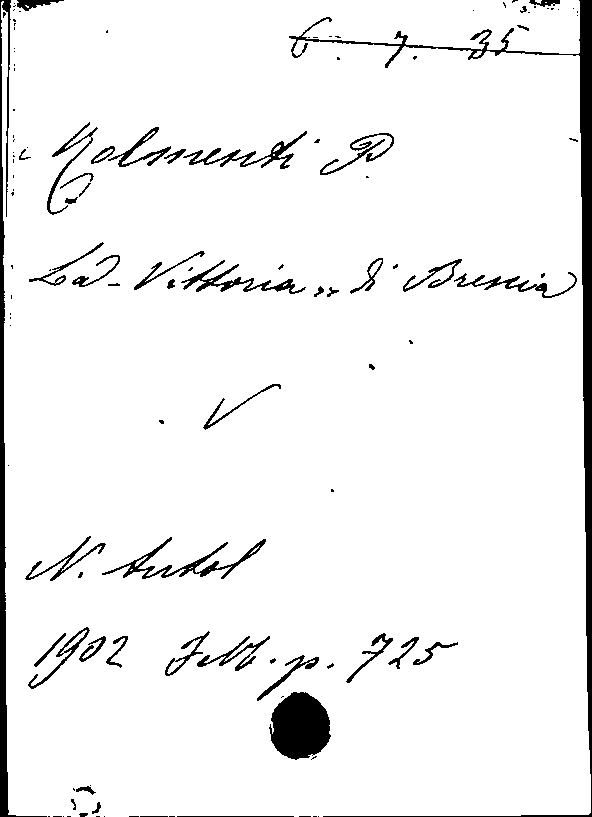 6. 7. 35
Molmenti P.
La "Vittoria" di Brescia
V
N. Antol
1902 Febb. p. 725